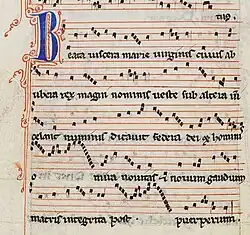 Beata viscera marie uirginis cuius ad
ubera rex magni nominis ueste sub altera uim
celans numinis dictauit federa dei & homini
o mira nouitas & nouum gaudium
matris integrita post puerperium.